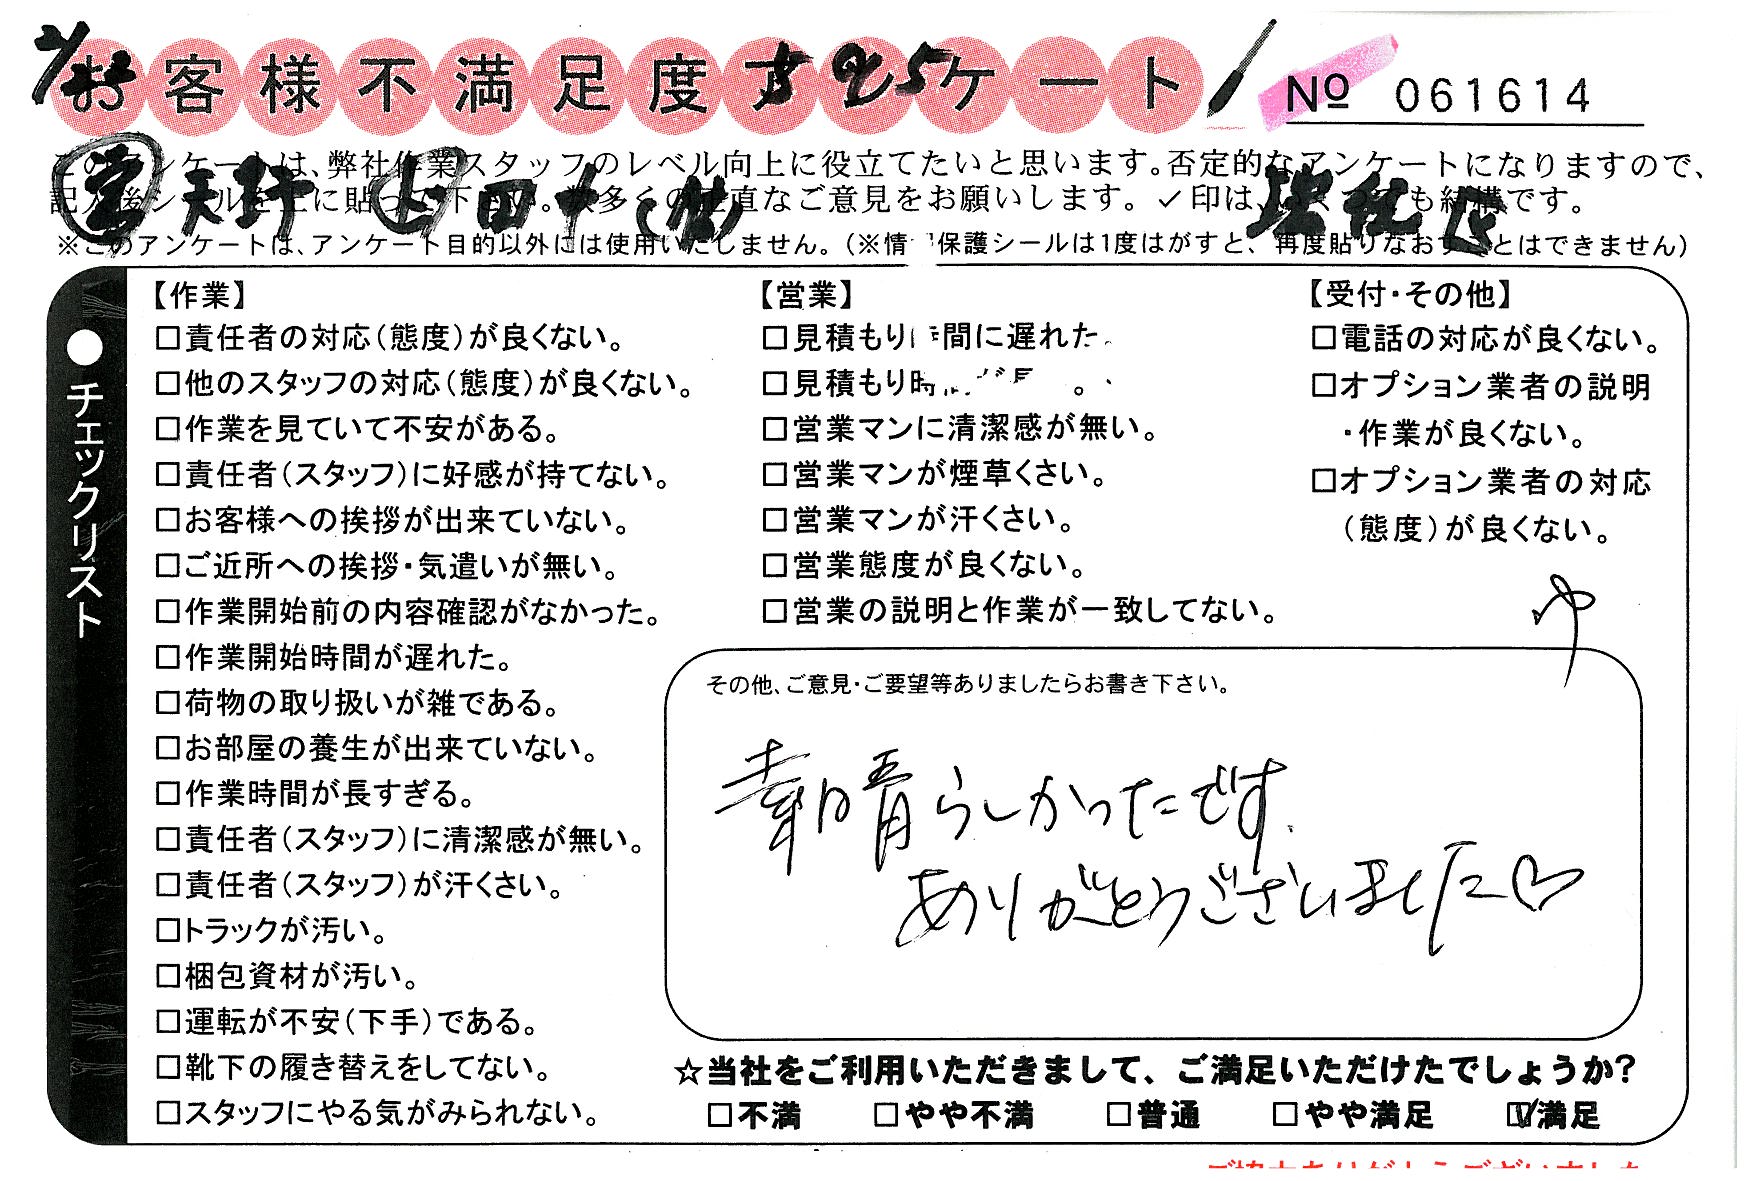 お客様不満足度アンケート
№ 061614
このアンケートは、弊社作業スタッフのレベル向上に役立てたいと思います。否定的なアンケートになりますので、
記入後シールを上に貼って下さい。数多くの正直なご意見をお願いします。✓印は、いくつでも結構です。
※このアンケートは、アンケート目的以外には使用いたしません。(※情 保護シールは1度はがすと、再度貼りなおすことはできません)
チェックリスト
【作業】
□責任者の対応(態度)が良くない。
□他のスタッフの対応(態度)が良くない。
□作業を見ていて不安がある。
□責任者(スタッフ)に好感が持てない。
□お客様への挨拶が出来ていない。
□ご近所への挨拶・気遣いが無い。
□作業開始前の内容確認がなかった。
□作業開始時間が遅れた。
□荷物の取り扱いが雑である。
□お部屋の養生が出来ていない。
□作業時間が長すぎる。
□責任者(スタッフ)に清潔感が無い。
□責任者(スタッフ)が汗くさい。
□トラックが汚い。
□梱包資材が汚い。
□運転が不安(下手)である。
□靴下の履き替えをしてない。
□スタッフにやる気がみられない。
【営業】
□見積もり時間に遅れた。
□見積もり時
□営業マンに清潔感が無い。
□営業マンが煙草くさい。
□営業マンが汗くさい。
□営業態度が良くない。
□営業の説明と作業が一致してない。
【受付・その他】
□電話の対応が良くない。
□オプション業者の説明
・作業が良くない。
□オプション業者の対応
(態度)が良くない。
その他、ご意見・ご要望等ありましたらお書き下さい。
素晴らしかったです。
ありがとうございました♡
☆当社をご利用いただきまして、ご満足いただけたでしょうか?
□不満 □やや不満 □普通 □やや満足 ☑満足
ご協力ありがとうございました